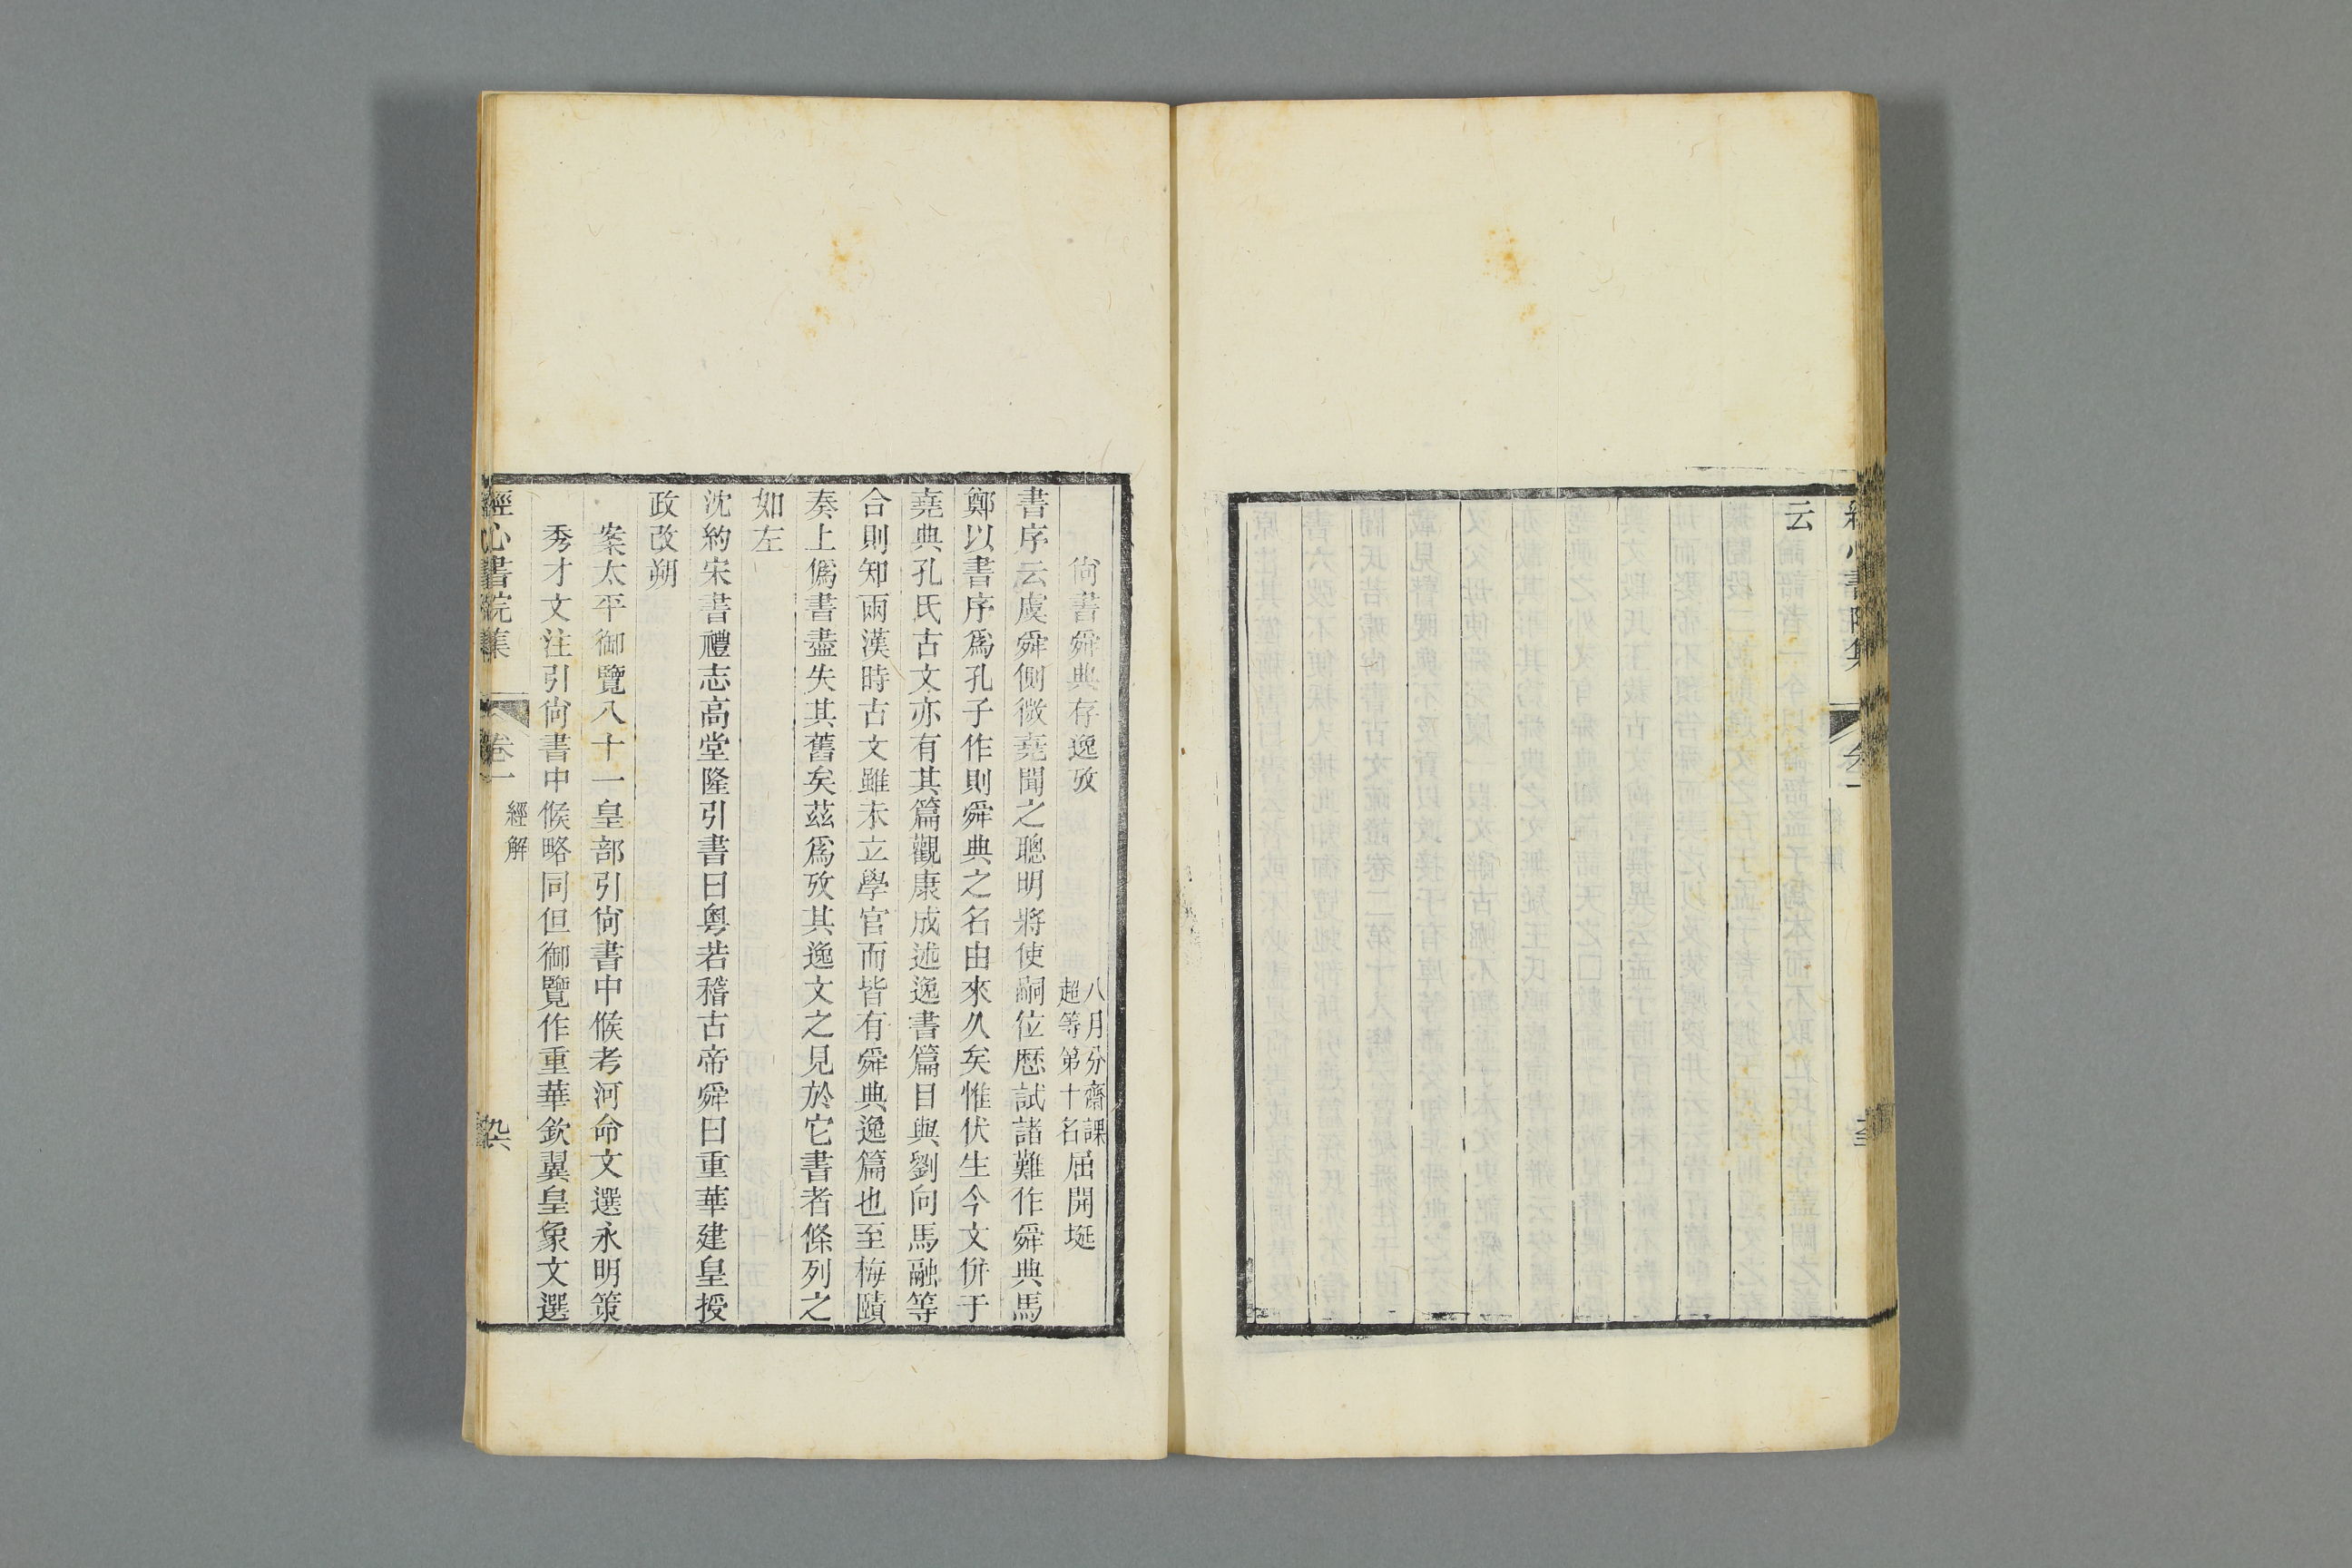 云
尙書舜典存逸攷 八月分齋課超等第十名 屈開埏
書序云虞舜側微堯聞之聰明將使嗣位歷試諸難作舜典馬
鄭以書序爲孔子作則舜典之名由來久矣惟伏生今文併于
堯典孔氏古文亦有其篇觀康成述逸書篇目與劉向馬融等
合則知兩漢時古文雖未立學官而皆有舜典逸篇也至梅賾
奏上僞書盡失其舊矣茲爲攷其逸文之見於它書者條列之
如左
沈約宋書禮志高堂隆引書曰粵若稽古帝舜曰重華建皇授
政改朔
案太平御覽八十一皇部引尙書中候考河命文選永明策
秀才文注引尙書中候略同但御覽作重華欽翼皇象文選
經心書院集 卷一 經解